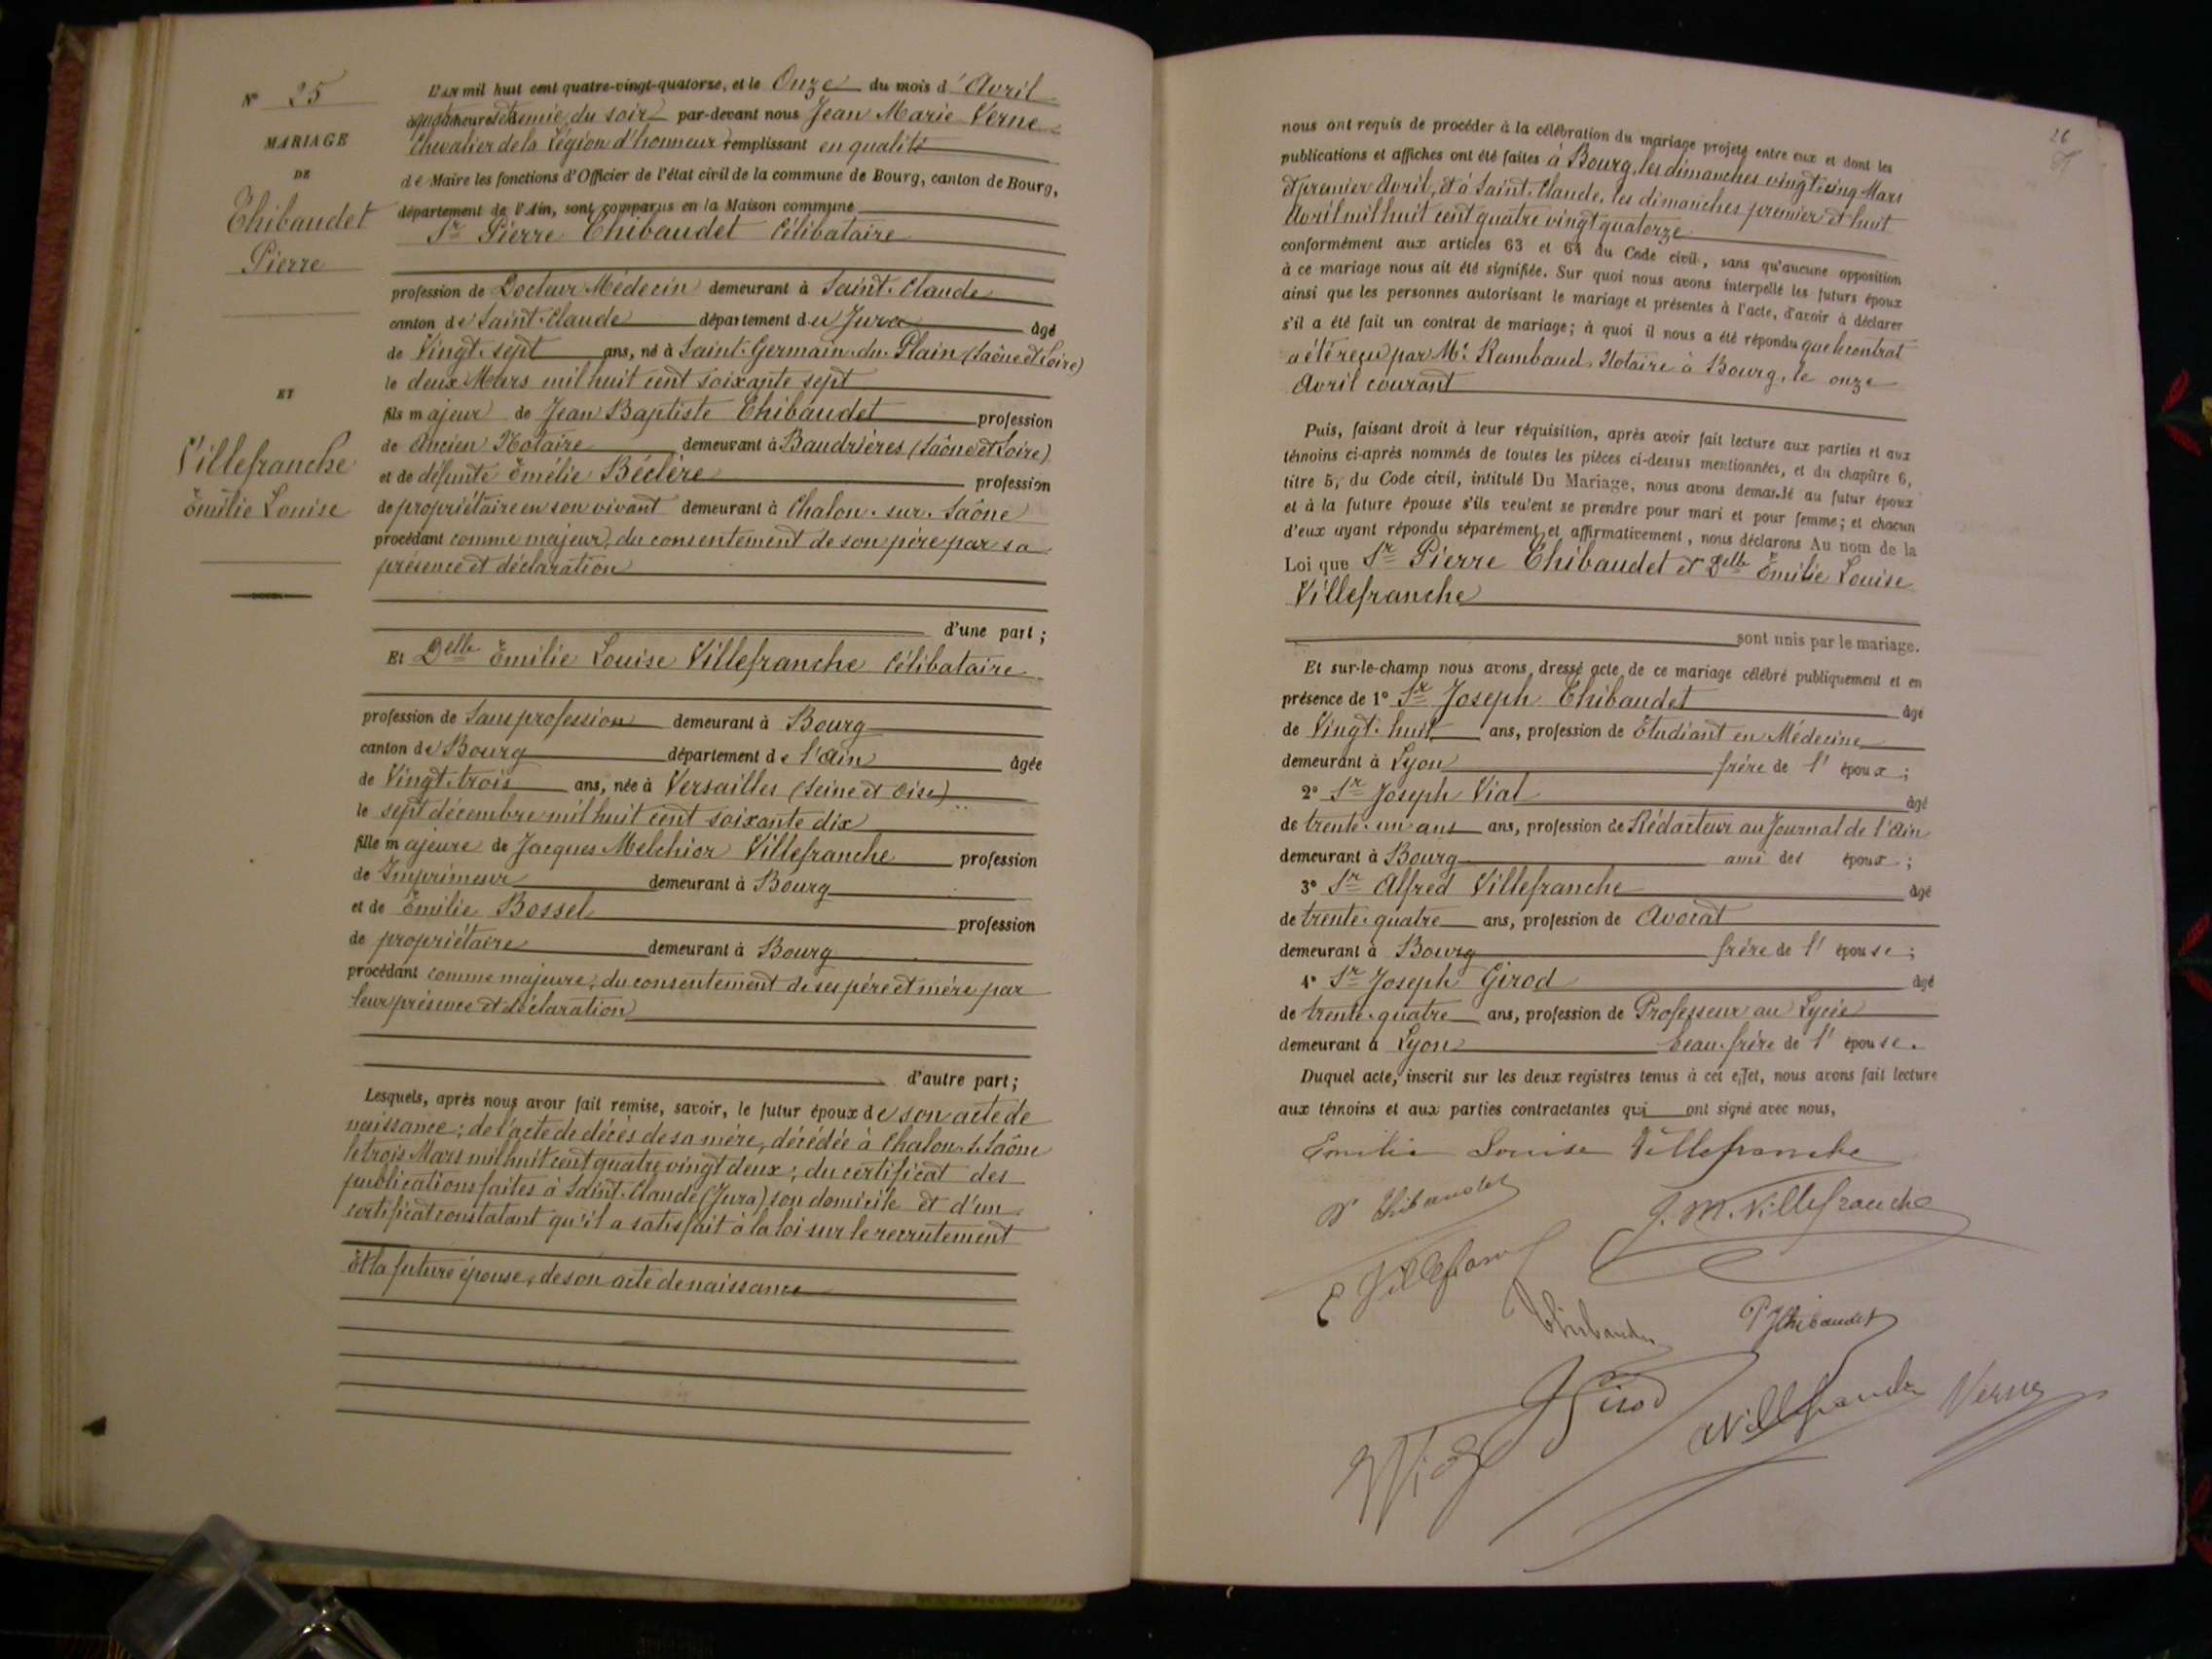 N° 25
MARIAGE
DE
Thibaudet
Pierre
ET
Villefranche
Émilie Louise
L'an mil huit cent quatre-vingt-quatorze, et le Onze du mois d'Avril
heures et demie du soir par-devant nous Jean Marie Verne
Chevalier de la Légion d'honneur remplissant en qualité
de Maire les fonctions d'Officier de l'état civil de la commune de Bourg, canton de Bourg,
département de l'Ain, sont comparus en la Maison commune
Sr Pierre Thibaudet Célibataire
profession de Docteur Médecin demeurant à Saint-Claude
canton de Saint-Claude département du Jura âgé
de Vingt-sept ans, né à Saint-Germain-du-Plain (Saône et Loire)
le deux Mars mil huit cent soixante sept
fils majeur de Jean Baptiste Thibaudet profession
de Ancien Notaire demeurant à Baudrières (Saône et Loire)
et de défunte Émélie Béclère profession
de propriétaire en son vivant demeurant à Chalon-sur-Saône
procédant comme majeur, du consentement de son père par sa
présence et déclaration
d'une part ;
Et Delle Émilie Louise Villefranche Célibataire
profession de Sans profession demeurant à Bourg
canton de Bourg département de l'Ain âgée
de Vingt-trois ans, née à Versailles (Seine et Oise)
le sept décembre mil huit cent soixante dix
fille majeure de Jacques Melchior Villefranche profession
de Imprimeur demeurant à Bourg
et de Émilie Bossel profession
de propriétaire demeurant à Bourg
procédant comme majeure, du consentement de ses père et mère par
leur présence et déclaration
d'autre part ;
Lesquels, après nous avoir fait remise, savoir, le futur époux de son acte de
naissance ; de l'acte de décès de sa mère, décédée à Chalon-s-Saône
le trois Mars mil huit cent quatre vingt deux ; du certificat des
publications faites à Saint-Claude (Jura) son domicile et d'un
certificat constatant qu'il a satisfait à la loi sur le recrutement
Et la future épouse, de son acte de naissance
26
nous ont requis de procéder à la célébration du mariage projeté entre eux et dont les
publications et affiches ont été faites à Bourg, les dimanches vingt cinq Mars
et premier Avril, et à Saint-Claude, les dimanches premier et huit
Avril mil huit cent quatre vingt quatorze
conformément aux articles 63 et 64 du Code civil, sans qu'aucune opposition
à ce mariage nous ait été signifiée. Sur quoi nous avons interpellé les futurs époux
ainsi que les personnes autorisant le mariage et présentes à l'acte, d'avoir à déclarer
s'il a été fait un contrat de mariage ; à quoi il nous a été répondu que le contrat
a été reçu par Me Rambaud, Notaire à Bourg, le onze
Avril courant
Puis, faisant droit à leur réquisition, après avoir fait lecture aux parties et aux
témoins ci-après nommés de toutes les pièces ci-dessus mentionnées, et du chapitre 6,
titre 5, du Code civil, intitulé Du Mariage, nous avons demandé au futur époux
et à la future épouse s'ils veulent se prendre pour mari et pour femme ; et chacun
d'eux ayant répondu séparément et affirmativement, nous déclarons Au nom de la
Loi que Sr Pierre Thibaudet et Delle Émilie Louise
Villefranche
sont unis par le mariage.
Et sur-le-champ nous avons dressé acte de ce mariage célébré publiquement et en
présence de 1° Sr Joseph Thibaudet âgé
de Vingt-huit ans, profession de Étudiant en Médecine
demeurant à Lyon frère de l'époux ;
2° Sr Joseph Vial âgé
de trente-un ans ans, profession de Rédacteur au Journal de l'Ain
demeurant à Bourg ami des époux ;
3° Sr Alfred Villefranche âgé
de trente-quatre ans, profession de Avocat
demeurant à Bourg frère de l'épouse ;
4° Sr Joseph Girod âgé
de trente-quatre ans, profession de Professeur au Lycée
demeurant à Lyon beau-frère de l'épouse.
Duquel acte, inscrit sur les deux registres tenus à cet effet, nous avons fait lecture
aux témoins et aux parties contractantes qui ont signé avec nous,
Emilie Louise Villefranche
Dr Thibaudet
J. M. Villefranche
E Villefranche
Thibaudet
Thibaudet
Girod
Villefranche
Verne